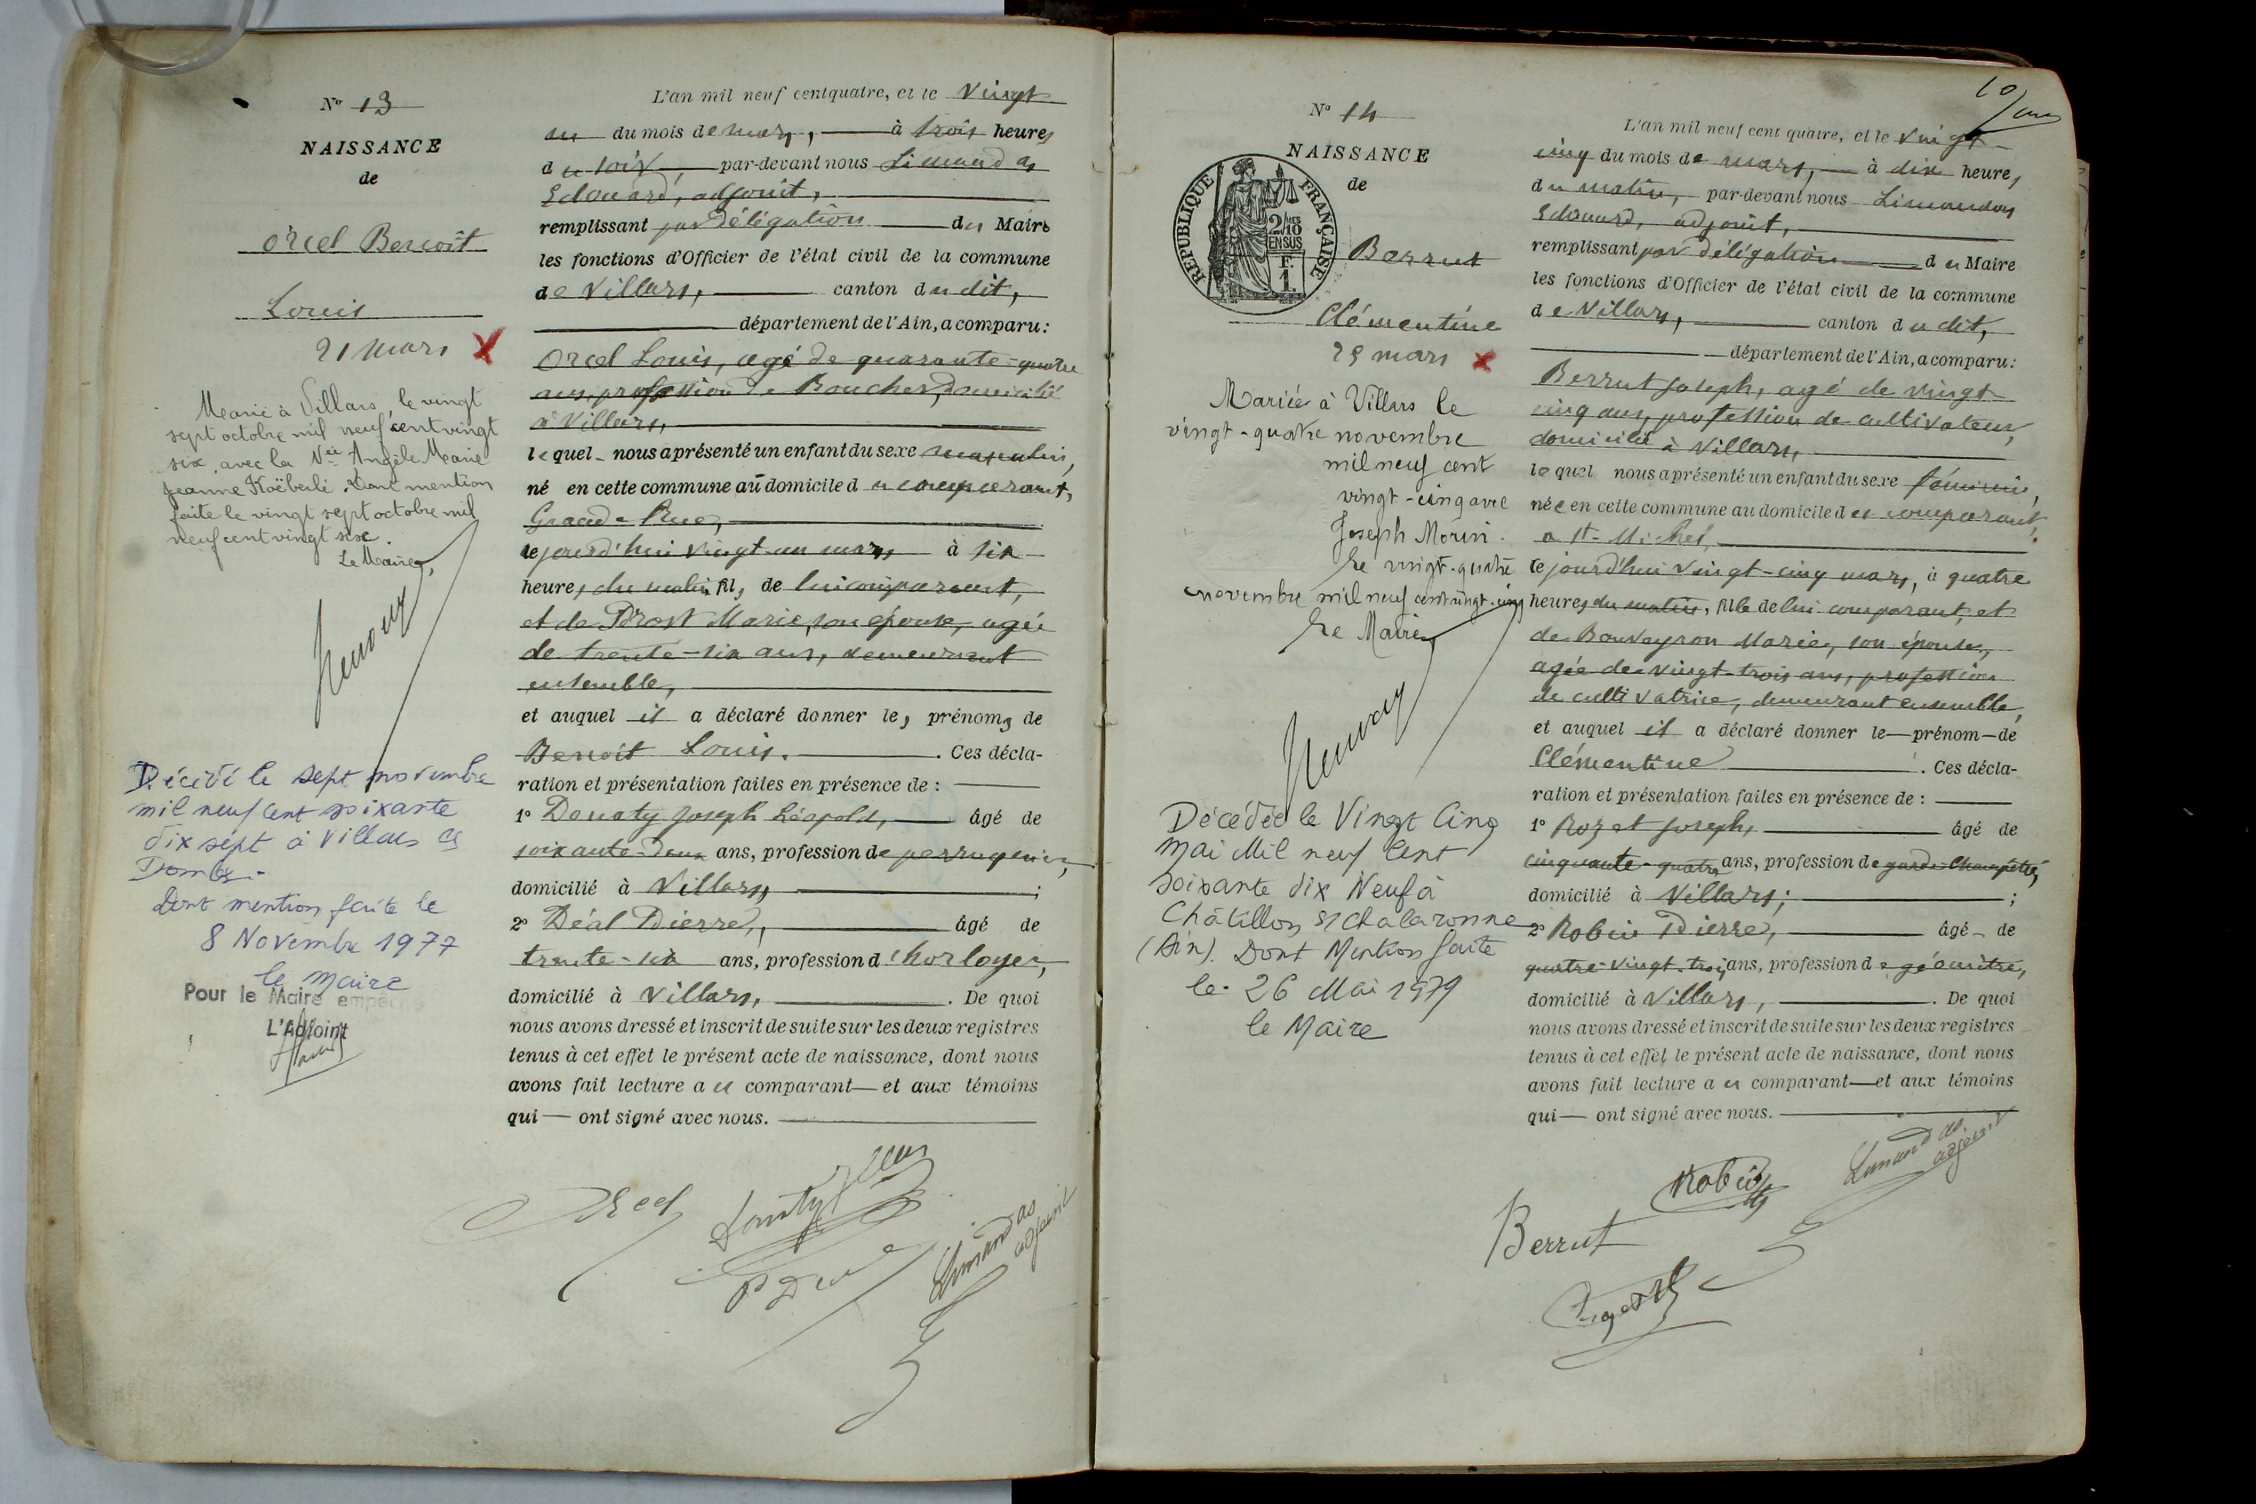 Nº 13
NAISSANCE
de
Orcel Benoît
Louis
21 mars
Marié à Villars, le vingt
sept octobre mil neuf cent vingt
six, avec la Née Angèle Marie
Jeanne Koëberlé. Dont mention
faite le vingt sept octobre mil
neuf cent vingt six.
Le Maire,
Décédé le sept novembre
mil neuf cent soixante
dix sept à Villars es
Dombes.-
Dont mention faite le
8 Novembre 1977
le Maire
Pour le Maire empêché
L'Adjoint
L'an mil neuf cent quatre, et le vingt
un du mois de mars, à trois heures
du soir, par-devant nous Limandas
Edouard, adjoint,
remplissant par délégation du Maire
les fonctions d'Officier de l'état civil de la commune
de Villars, canton dudit,
département de l'Ain, a comparu :
Orcel Louis, agé de quarante-quatre
ans, profession de Boucher, domicilié
à Villars,
lequel nous a présenté un enfant du sexe masculin,
né en cette commune au domicile du comparant,
Grande Rue,
cejourd'hui vingt-un mars à six
heures du matin fils de lui comparant,
et de Prost Marie, son épouse, agée
de trente-six ans, demeurant
ensemble,
et auquel il a déclaré donner les prénoms de
Benoît Louis. Ces décla-
ration et présentation faites en présence de :
1º Donaty Joseph Léopold, âgé de
soixante-deux ans, profession de perruquier,
domicilié à Villars, ;
2º Déal Pierre, âgé de
trente-six ans, profession d'horloger,
domicilié à Villars, . De quoi
nous avons dressé et inscrit de suite sur les deux registres
tenus à cet effet le présent acte de naissance, dont nous
avons fait lecture au comparant et aux témoins
qui ont signé avec nous.
Orcel
Donaty
Limandas
adjoint
10
Nº 14
NAISSANCE
de
RÉPUBLIQUE FRANÇAISE
2/10
EN SUS
F.
1.
Berrut
Clémentine
25 mars
Mariée à Villars le
vingt-quatre novembre
mil neuf cent
vingt-cinq avec
Joseph Morin.
Le vingt-quatre
novembre mil neuf cent vingt-cinq
Le Maire
Décédée le Vingt Cinq
Mai Mil neuf Cent
soixante dix Neuf à
Châtillon s/ Chalaronne
(Ain). Dont Mention faite
le 26 Mai 1979
le Maire
L'an mil neuf cent quatre, et le vingt-
cinq du mois de mars, à dix heures
du matin, par-devant nous Limandas
Edouard, adjoint,
remplissant par délégation du Maire
les fonctions d'Officier de l'état civil de la commune
de Villars, canton dudit,
département de l'Ain, a comparu :
Berrut Joseph, agé de vingt-
cinq ans, profession de cultivateur,
domicilié à Villars,
lequel nous a présenté un enfant du sexe féminin,
née en cette commune au domicile du comparant,
a St-Michel,
cejourd'hui vingt-cinq mars, à quatre
heures du matin, fille de lui comparant, et
de Bouvayron Marie, son épouse,
agée de vingt-trois ans, profession
de cultivatrice, demeurant ensemble,
et auquel il a déclaré donner le prénom de
Clémentine . Ces décla-
ration et présentation faites en présence de :
1º Rozet Joseph, âgé de
cinquante-quatre ans, profession de garde-champêtre,
domicilié à Villars; ;
2º Robin Pierre, âgé de
quatre-vingt-trois ans, profession de géomètre,
domicilié à Villars, . De quoi
nous avons dressé et inscrit de suite sur les deux registres
tenus à cet effet le présent acte de naissance, dont nous
avons fait lecture au comparant et aux témoins
qui ont signé avec nous.
Limandas
adjoint
Robin
Berrut